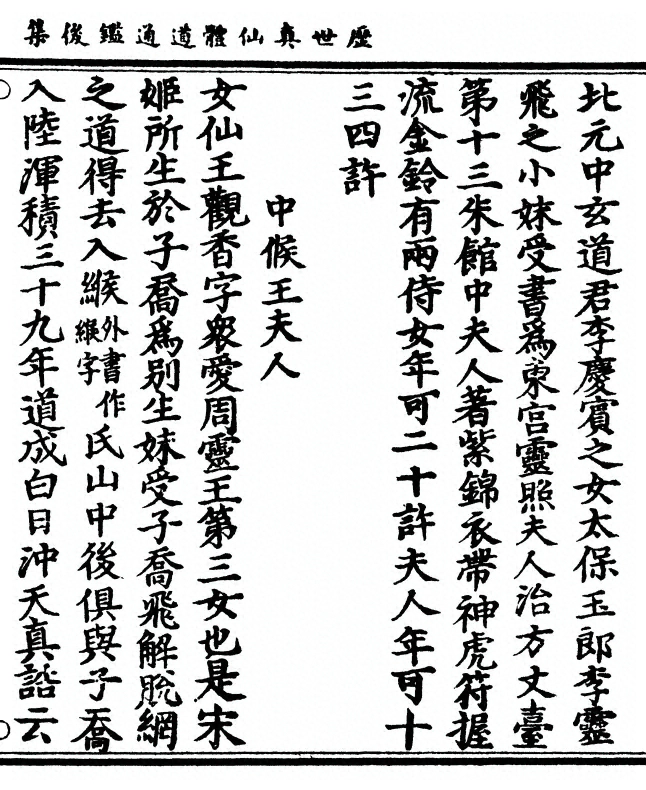 歷世真仙體道通鑑後集
北元中玄道君李慶賓之女太保玉郎李靈
飛之小妹受書爲東宮靈照夫人治方丈臺
第十三朱館中夫人著紫錦衣帶神虎符握
流金鈴有兩侍女年可二十許夫人年可十
三四許
中候王夫人
女仙王觀香字衆愛周靈王第三女也是宋
姬所生於子喬爲别生妹受子喬飛解脫網
之道得去入緱外書作緱字氏山中後俱與子喬
入陸渾積三十九年道成白日沖天真誥云